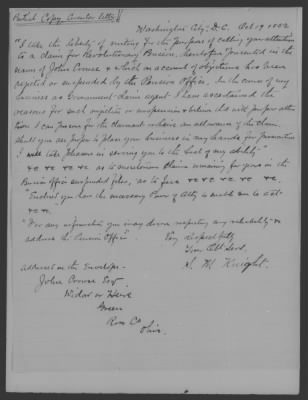 Partial Copy Circular Letter
Washington City, D.C. Oct 19 1852
"I take the liberty of writing for the purpose of calling your attention
to a claim for Revolutionary Pension, heretofore presented in the
name of John Crouse & which on account of objections has been
rejected or suspended by the Pension Office. In the course of my
business as Government claim agent I have ascertained the
reasons for such rejection or suspension & believe that with proper atten
tion I can procure for the claimant or heirs an allowance of the claim
should you see proper to place your business in my hands for prosecution
I will take pleasure in serving you to the best of my ability"
as to meritorious claims remaining for years in the
Pension Office suspended files, as to fees
"Enclosed you have the necessary Power of Atty to enable me to act
"For any information you may desire respecting my reliability
address the Pension Office. Very respectfully
Your Obt Servt,
S. M. Knight.
address on the Envelope.
John Crouse Esq
Widow or Heirs
Green
Ross Co
Ohio.